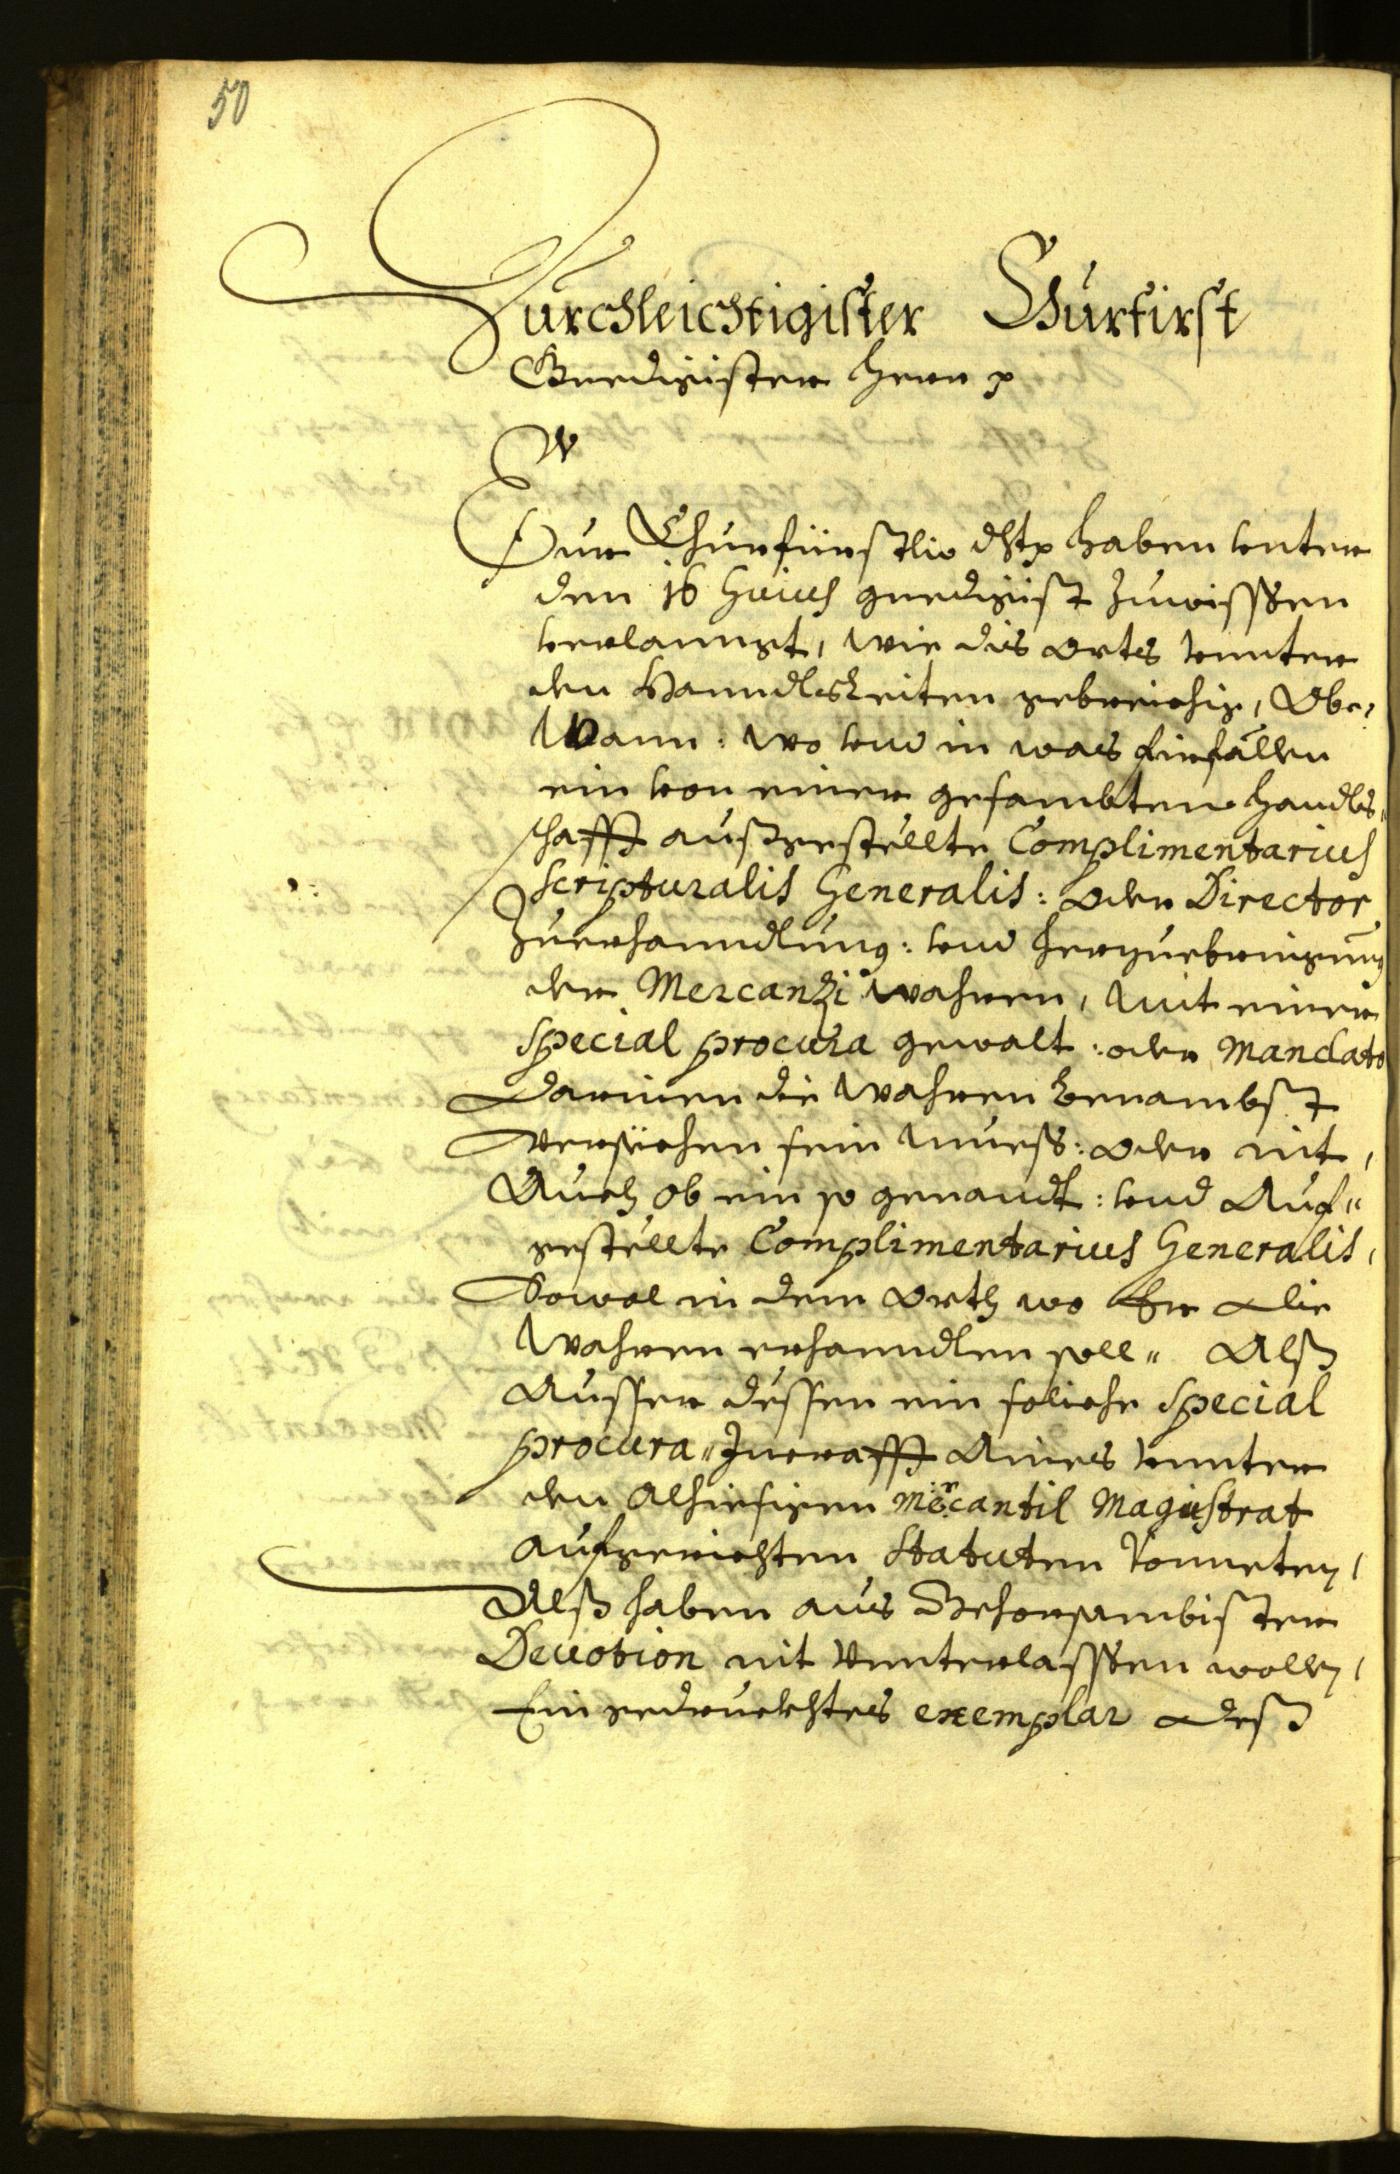 50
Durchleichtigister Churfirst
Gnedigister Herr p
Ew
Eur Churfürstlic dhtp haben unter
den 16 Huius gnedigist zuwissen
verlanngt, wie dis orts unnter
den Hanndlsleiten gebreichig, Ob-,
Wann: Wo und in was fürfällen
ein von einer gesambten handls„
schafft aufgestellte Complimentarius
scripturalis Generalis: oder Director
Zuerhanndlung: und herzuebringung
der Mercanzi wahren, mit einer
special procura gewalt: oder Mandato
darinen die Wahren benambst
versichen sein muess: oder nit,
Auch ob ein so genandt: und Auf„
gestellte Complimentarius Generalis,
Sowol in dem Orth wo Er die
Wahren erhanndlen soll„ Alß
Ausser dessen ein soliche special
procura„ In crafft Aines unnter
den Alhiesigen Mercantil Magistrat
aufgerichten Statuten vonneten,
Alß haben aus Gehorsambister
Devotion nit Unnterlassen wollen,
Ein gedruckhtes exemplar deß